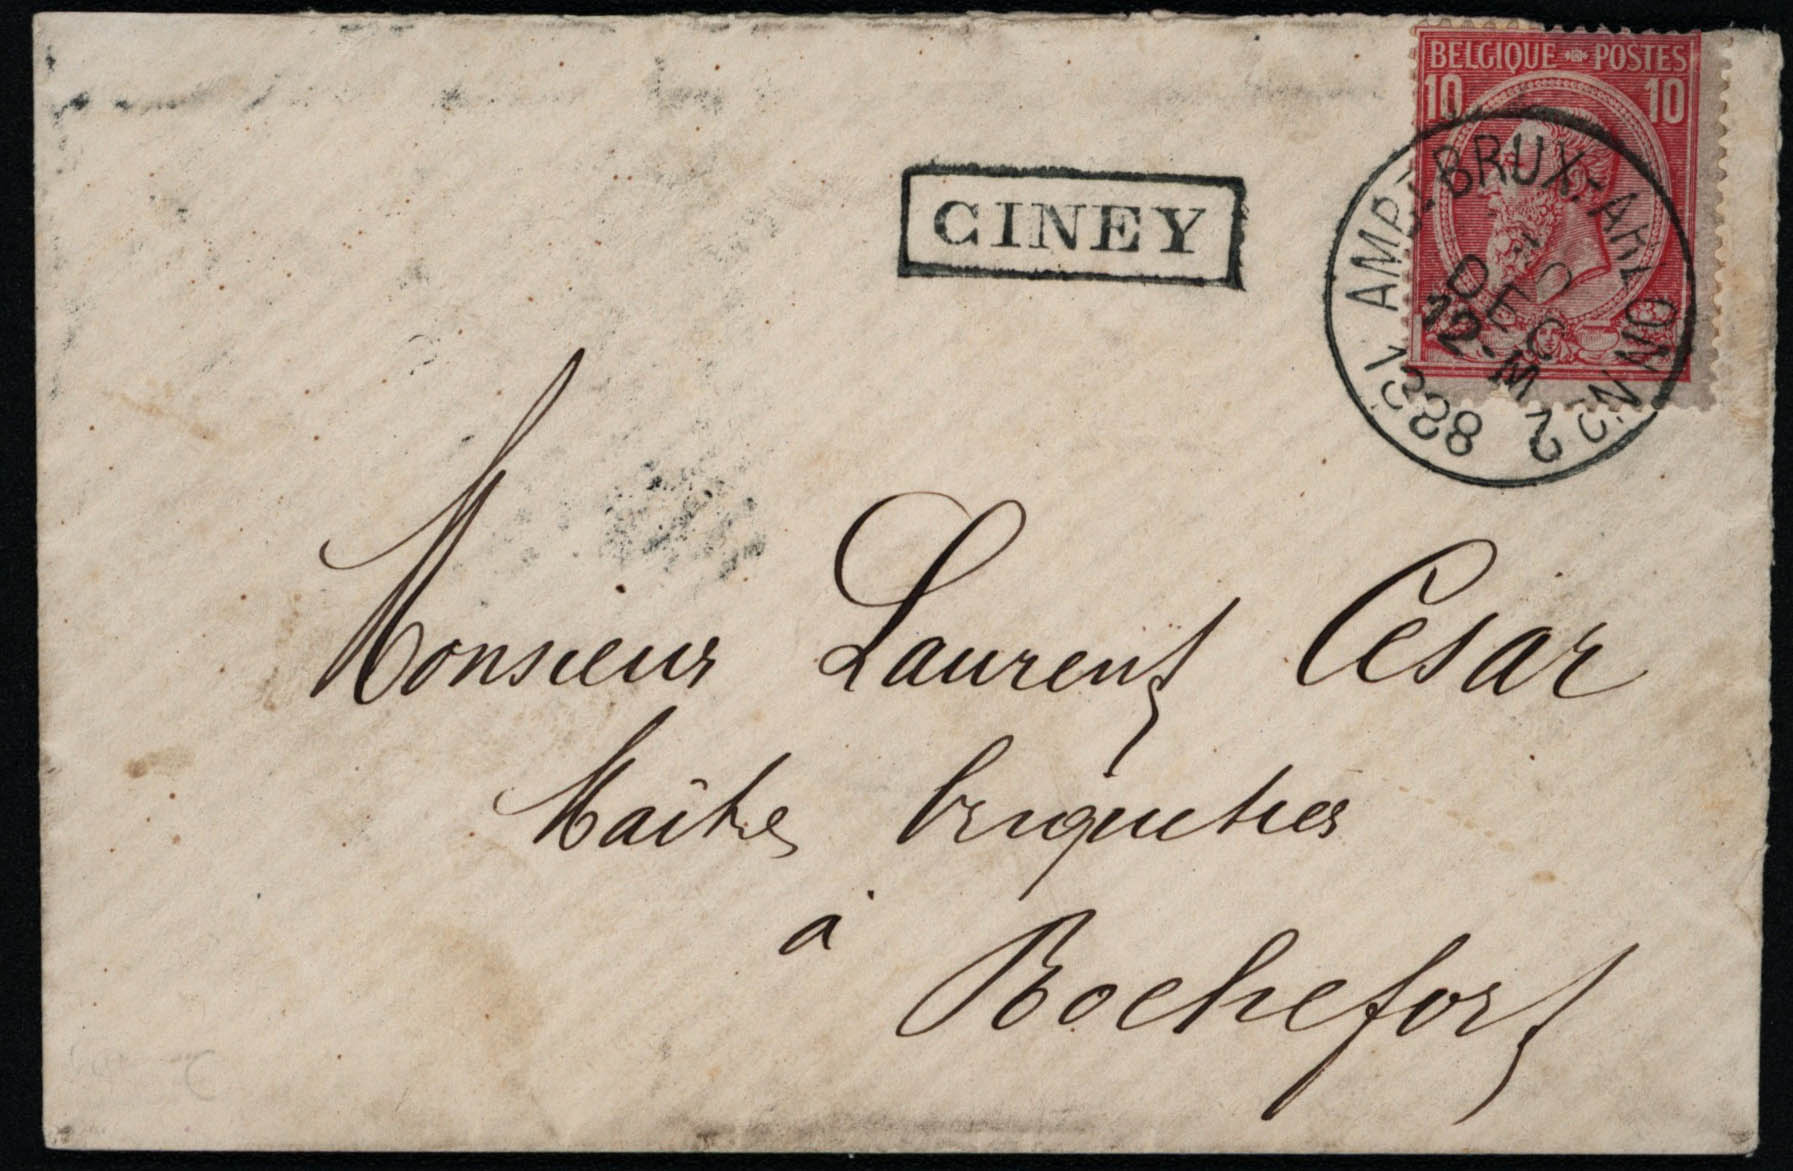 BELGIQUE POSTES
10 10
CINEY
AMBT BRUX-ARLON No 2
DEC
12-M
1888
Monsieur Laurent César
Maître briquetier
à
Rochefort